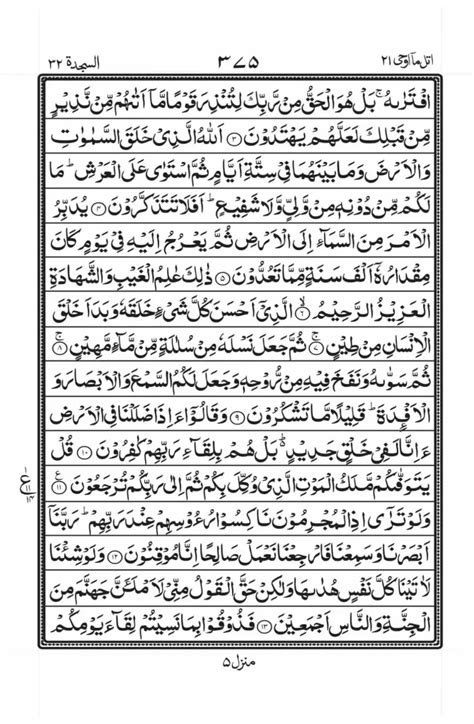 السجدة ٣٢ ٣٧٥ اتل ما اوحی ٢١
افْتَرٰىهُ ۚ بَلْ هُوَ الْحَقُّ مِنْ رَّبِّكَ لِتُنْذِرَ قَوْمًا مَّاۤ اَتٰىهُمْ مِّنْ نَّذِیْرٍ
مِّنْ قَبْلِكَ لَعَلَّهُمْ یَهْتَدُوْنَ ﴿۳﴾ اَللّٰهُ الَّذِیْ خَلَقَ السَّمٰوٰتِ
وَالْاَرْضَ وَمَا بَیْنَهُمَا فِیْ سِتَّةِ اَیَّامٍ ثُمَّ اسْتَوٰی عَلَی الْعَرْشِ ؕ مَا
لَكُمْ مِّنْ دُوْنِهٖ مِنْ وَّلِیٍّ وَّلَا شَفِیْعٍ ؕ اَفَلَا تَتَذَكَّرُوْنَ ﴿۴﴾ یُدَبِّرُ
الْاَمْرَ مِنَ السَّمَآءِ اِلَی الْاَرْضِ ثُمَّ یَعْرُجُ اِلَیْهِ فِیْ یَوْمٍ كَانَ
مِقْدَارُهٗۤ اَلْفَ سَنَةٍ مِّمَّا تَعُدُّوْنَ ﴿۵﴾ ذٰلِكَ عٰلِمُ الْغَیْبِ وَالشَّهَادَةِ
الْعَزِیْزُ الرَّحِیْمُ ﴿۶﴾ الَّذِیْۤ اَحْسَنَ كُلَّ شَیْءٍ خَلَقَهٗ وَبَدَاَ خَلْقَ
الْاِنْسَانِ مِنْ طِیْنٍ ﴿۷﴾ ثُمَّ جَعَلَ نَسْلَهٗ مِنْ سُلٰلَةٍ مِّنْ مَّآءٍ مَّهِیْنٍ ﴿۸﴾
ثُمَّ سَوّٰىهُ وَنَفَخَ فِیْهِ مِنْ رُّوْحِهٖ وَجَعَلَ لَكُمُ السَّمْعَ وَالْاَبْصَارَ وَ
الْاَفْـِٕدَةَ ؕ قَلِیْلًا مَّا تَشْكُرُوْنَ ﴿۹﴾ وَقَالُوْۤا ءَاِذَا ضَلَلْنَا فِی الْاَرْضِ
ءَاِنَّا لَفِیْ خَلْقٍ جَدِیْدٍ ؕ بَلْ هُمْ بِلِقَآئِ رَبِّهِمْ كٰفِرُوْنَ ﴿۱۰﴾ قُلْ
یَتَوَفّٰىكُمْ مَّلَكُ الْمَوْتِ الَّذِیْ وُكِّلَ بِكُمْ ثُمَّ اِلٰی رَبِّكُمْ تُرْجَعُوْنَ ﴿۱۱﴾
وَلَوْ تَرٰۤی اِذِ الْمُجْرِمُوْنَ نَاكِسُوْا رُءُوْسِهِمْ عِنْدَ رَبِّهِمْ ؕ رَبَّنَاۤ
اَبْصَرْنَا وَسَمِعْنَا فَارْجِعْنَا نَعْمَلْ صَالِحًا اِنَّا مُوْقِنُوْنَ ﴿۱۲﴾ وَلَوْ شِئْنَا
لَاٰتَیْنَا كُلَّ نَفْسٍ هُدٰىهَا وَلٰكِنْ حَقَّ الْقَوْلُ مِنِّیْ لَاَمْلَـَٔنَّ جَهَنَّمَ مِنَ
الْجِنَّةِ وَالنَّاسِ اَجْمَعِیْنَ ﴿۱۳﴾ فَذُوْقُوْا بِمَا نَسِیْتُمْ لِقَآءَ یَوْمِكُمْ
منزل ۵